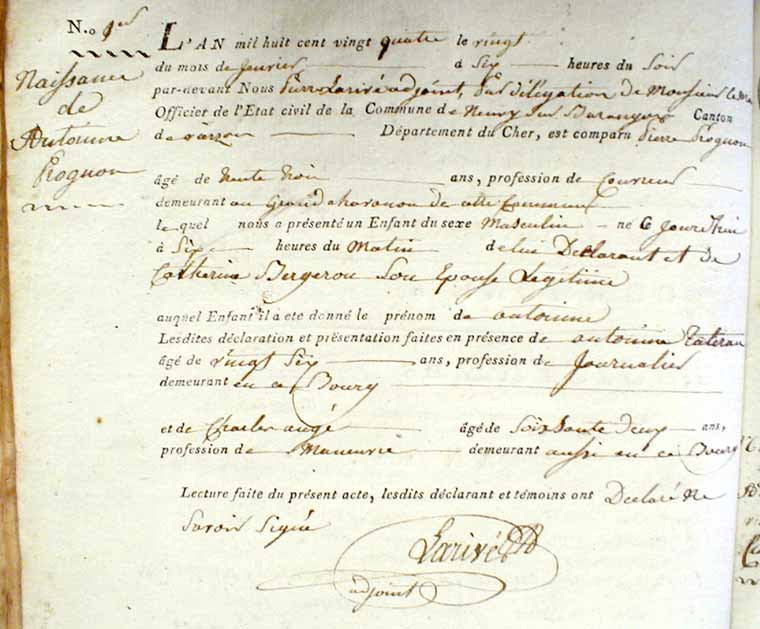 N.o 1er
Naissance
de
Antoinne
Rognon
L'AN mil huit cent vingt quatre le vingt
du mois de Janvier à Six heures du Soir
par-devant Nous Pierre Larivé adjoint, Par délégation de Monsieur le
Officier de l'Etat civil de la Commune de Neuvy Sur Baranjon Canton
de Vierzon Département du Cher, est comparu Pierre Rognon
âgé de trente trois ans, profession de Couvreur
demeurant au Grand de cette Commune
lequel nous a présenté un Enfant du sexe Masculin né Ce Jourdhui
à Six heures du Matin de lui Déclarant et de
Catherine Bergeron Son Epouse Legitime
auquel Enfant il a été donné le prénom de antoinne
Lesdites déclaration et présentation faites en présence de antoinne
âgé de vingt Six ans, profession de Journalier
demeurant en ce Bourg
et de Charles augé âgé de Soixsante Deux ans,
profession de Maneuvre demeurant aussi en ce Bourg
Lecture faite du présent acte, lesdits déclarant et témoins ont Declaré Ne
Savoir Signée
Larivé
adjoint